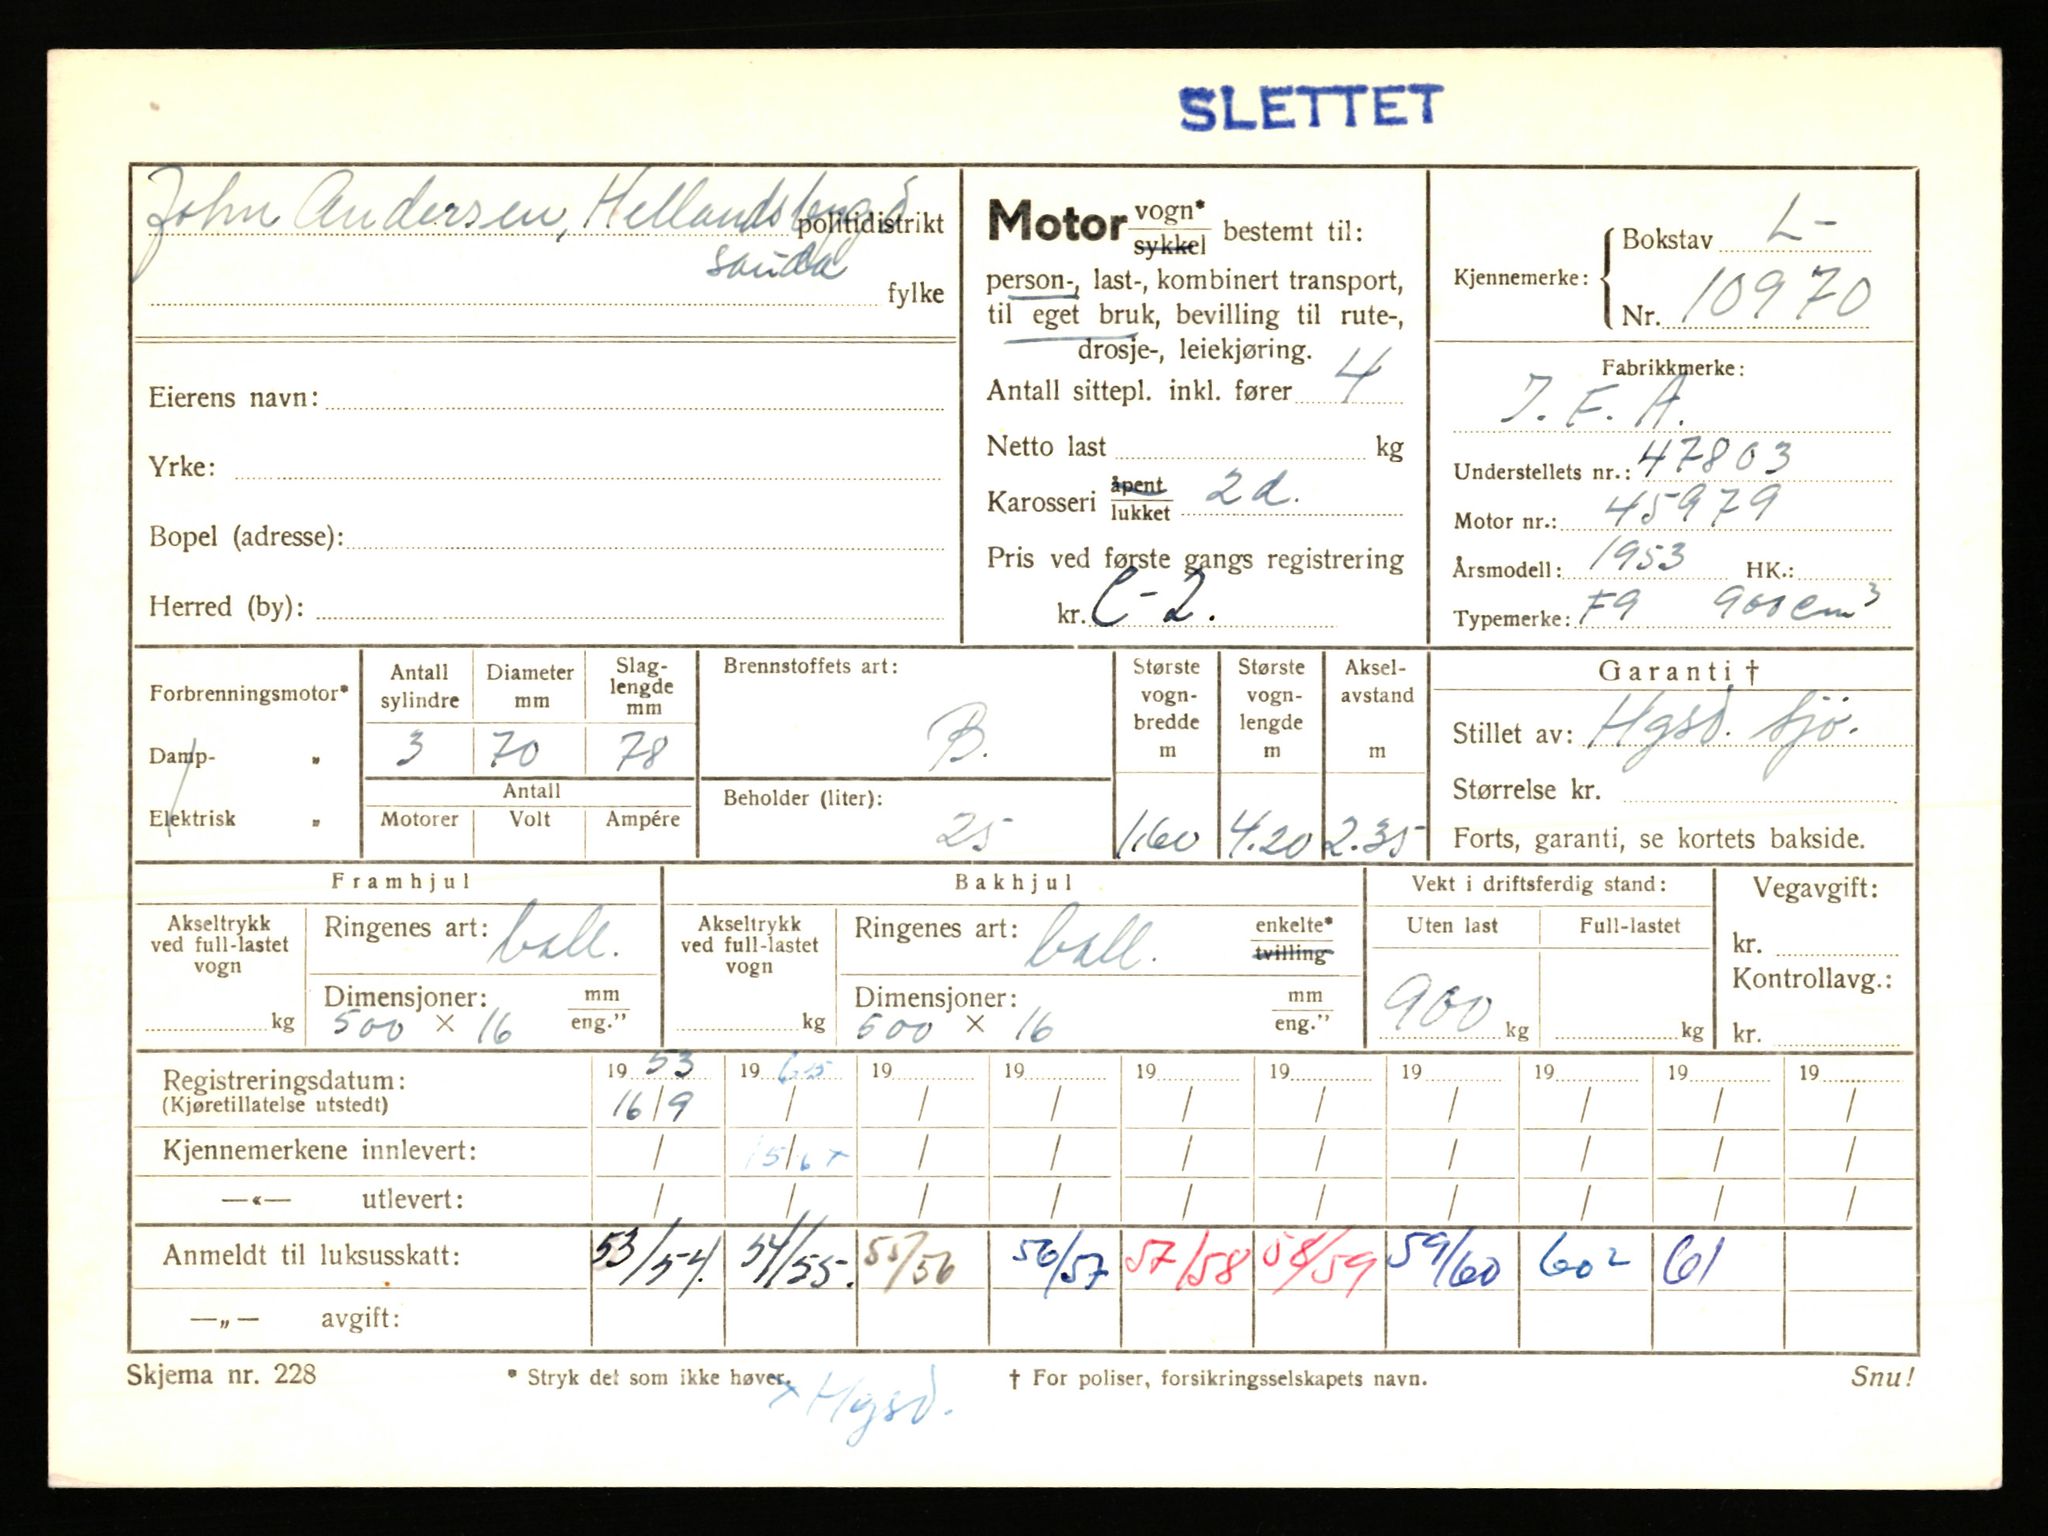 SLETTET
John Andersen, Hellandsbygd politidistrikt
Sauda
fylke
Eierens navn:
Yrke:
Bopel (adresse):
Herred (by):
Motor vogn* sykkel bestemt til:
person-, last-, kombinert transport,
til eget bruk, bevilling til rute-,
drosje-, leiekjøring.
Antall sittepl. inkl. fører 4
Netto last kg
Karosseri åpent lukket 2 d.
Pris ved første gangs registrering
kr. C-2.
Kjennemerke: Bokstav L-
Nr. 10970
Fabrikkmerke:
I. F. A.
Understellets nr.: 47803
Motor nr.: 45979
Årsmodell: 1953 HK.:
Typemerke: F9 900 cm³
Forbrenningsmotor*
Damp- „
Elektrisk „
Antall sylindre 3
Diameter mm 70
Slaglengde mm 78
Antall
Motorer Volt Ampére
Brennstoffets art:
B.
Beholder (liter):
25
Største vognbredde m 1.60
Største vognlengde m 4.20
Akselavstand m 2.35
Garanti †
Stillet av: Hgsd. Sjø.
Størrelse kr.
Forts, garanti, se kortets bakside.
Framhjul
Akseltrykk ved full-lastet vogn kg
Ringenes art: ball.
Dimensjoner: mm eng."
500 × 16
Bakhjul
Akseltrykk ved full-lastet vogn kg
Ringenes art: ball. enkelte* tvilling
Dimensjoner: mm eng."
500 × 16
Vekt i driftsferdig stand:
Uten last Full-lastet
900 kg kg
Vegavgift:
kr.
Kontrollavg.:
kr.
Registreringsdatum: 19 53 19 65 19 19 19 19 19 19 19 19
(Kjøretillatelse utstedt) 16/9 / / / / / / / / /
Kjennemerkene innlevert: / 15/6 × / / / / / / / /
—«— utlevert: / / / / / / / / / /
Anmeldt til luksusskatt: 53/54. 54/55. 55/56 56/57 57/58 58/59 59/60 60² 61
—„— avgift:
Skjema nr. 228 * Stryk det som ikke høver. † For poliser, forsikringsselskapets navn. Snu!
× Hgsd.